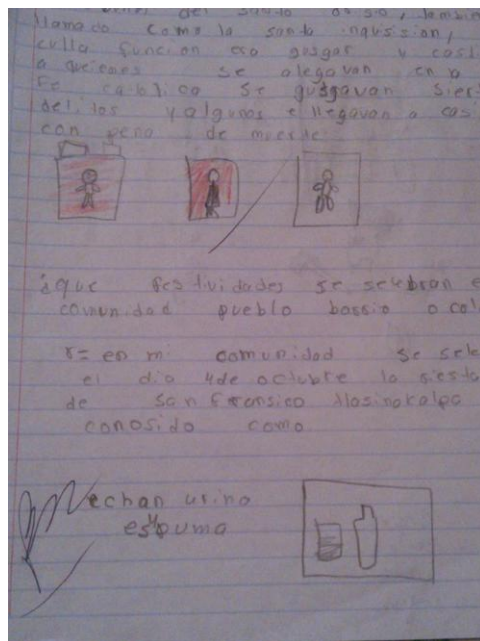 del santo ofisio, tambien
llamado como la santa inqusision,
culla funcion era gusgar y cast
a queienes se alegavan en la
Fe catolica se gusgavan siers
delitos y algunos e llegavan a cas
con pena de muerte
¿que festividades se selebran e
comunidad pueblo barrio o col
r= en mi comunidad se sele
el dia 4 de octubre la fiesta
de San Fransico
conosido como
echan
espuma